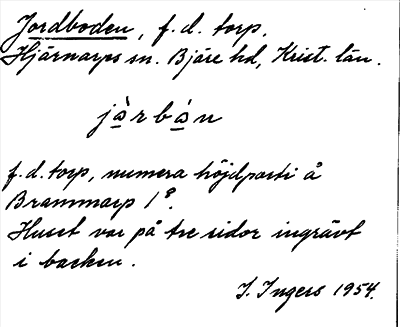 Jordboden, f. d. torp.
Hjärnarps sn. Bjäre hd, Krist. län.
jàrbán
f. d. torp, numera höjdparti å
Brammarp 1⁸.
Huset var på tre sidor ingrävt
i backen.
I. Ingers 1954.